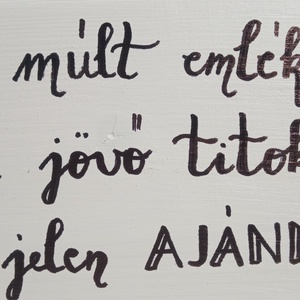 múlt emlék
jövő titok
jelen AJÁND